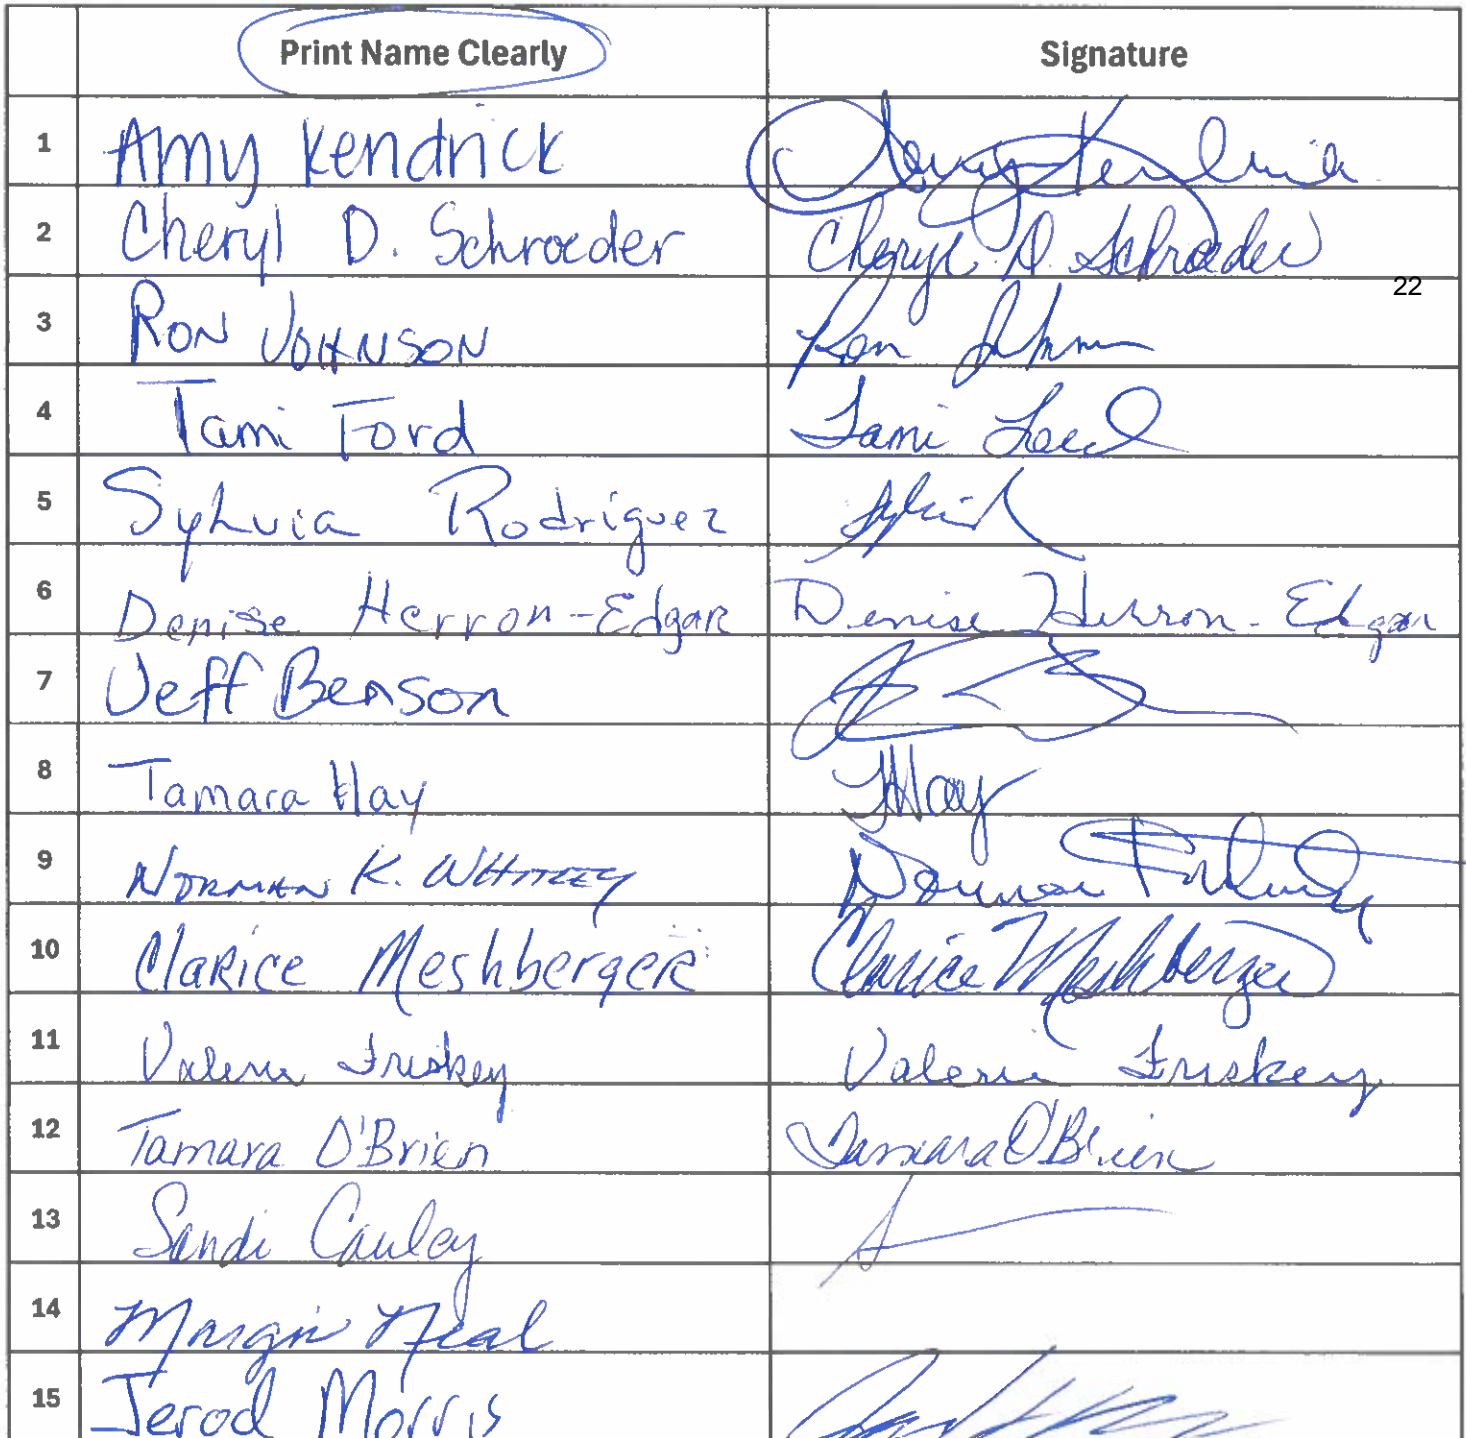 Print Name Clearly Signature
1 Amy Kendrick Amy Kendrick
2 Cheryl D. Schroeder Cheryl D. Schroeder
22
3 RON JOHNSON Ron Johnson
4 Tami Ford Tami Ford
5 Sylvia Rodriguez
6 Denise Herron-Edgar Denise Herron-Edgar
7 Jeff Benson
8 Tamara Hay THay
9 NORMAN K. WHITLEY Norman
10 Clarice Meshberger Clarice Meshberger
11 Valerie Friskey Valerie Friskey
12 Tamara O'Brien Tamara O'Brien
13 Sandi Cauley
14 Margie Neal
15 Jerod Morris